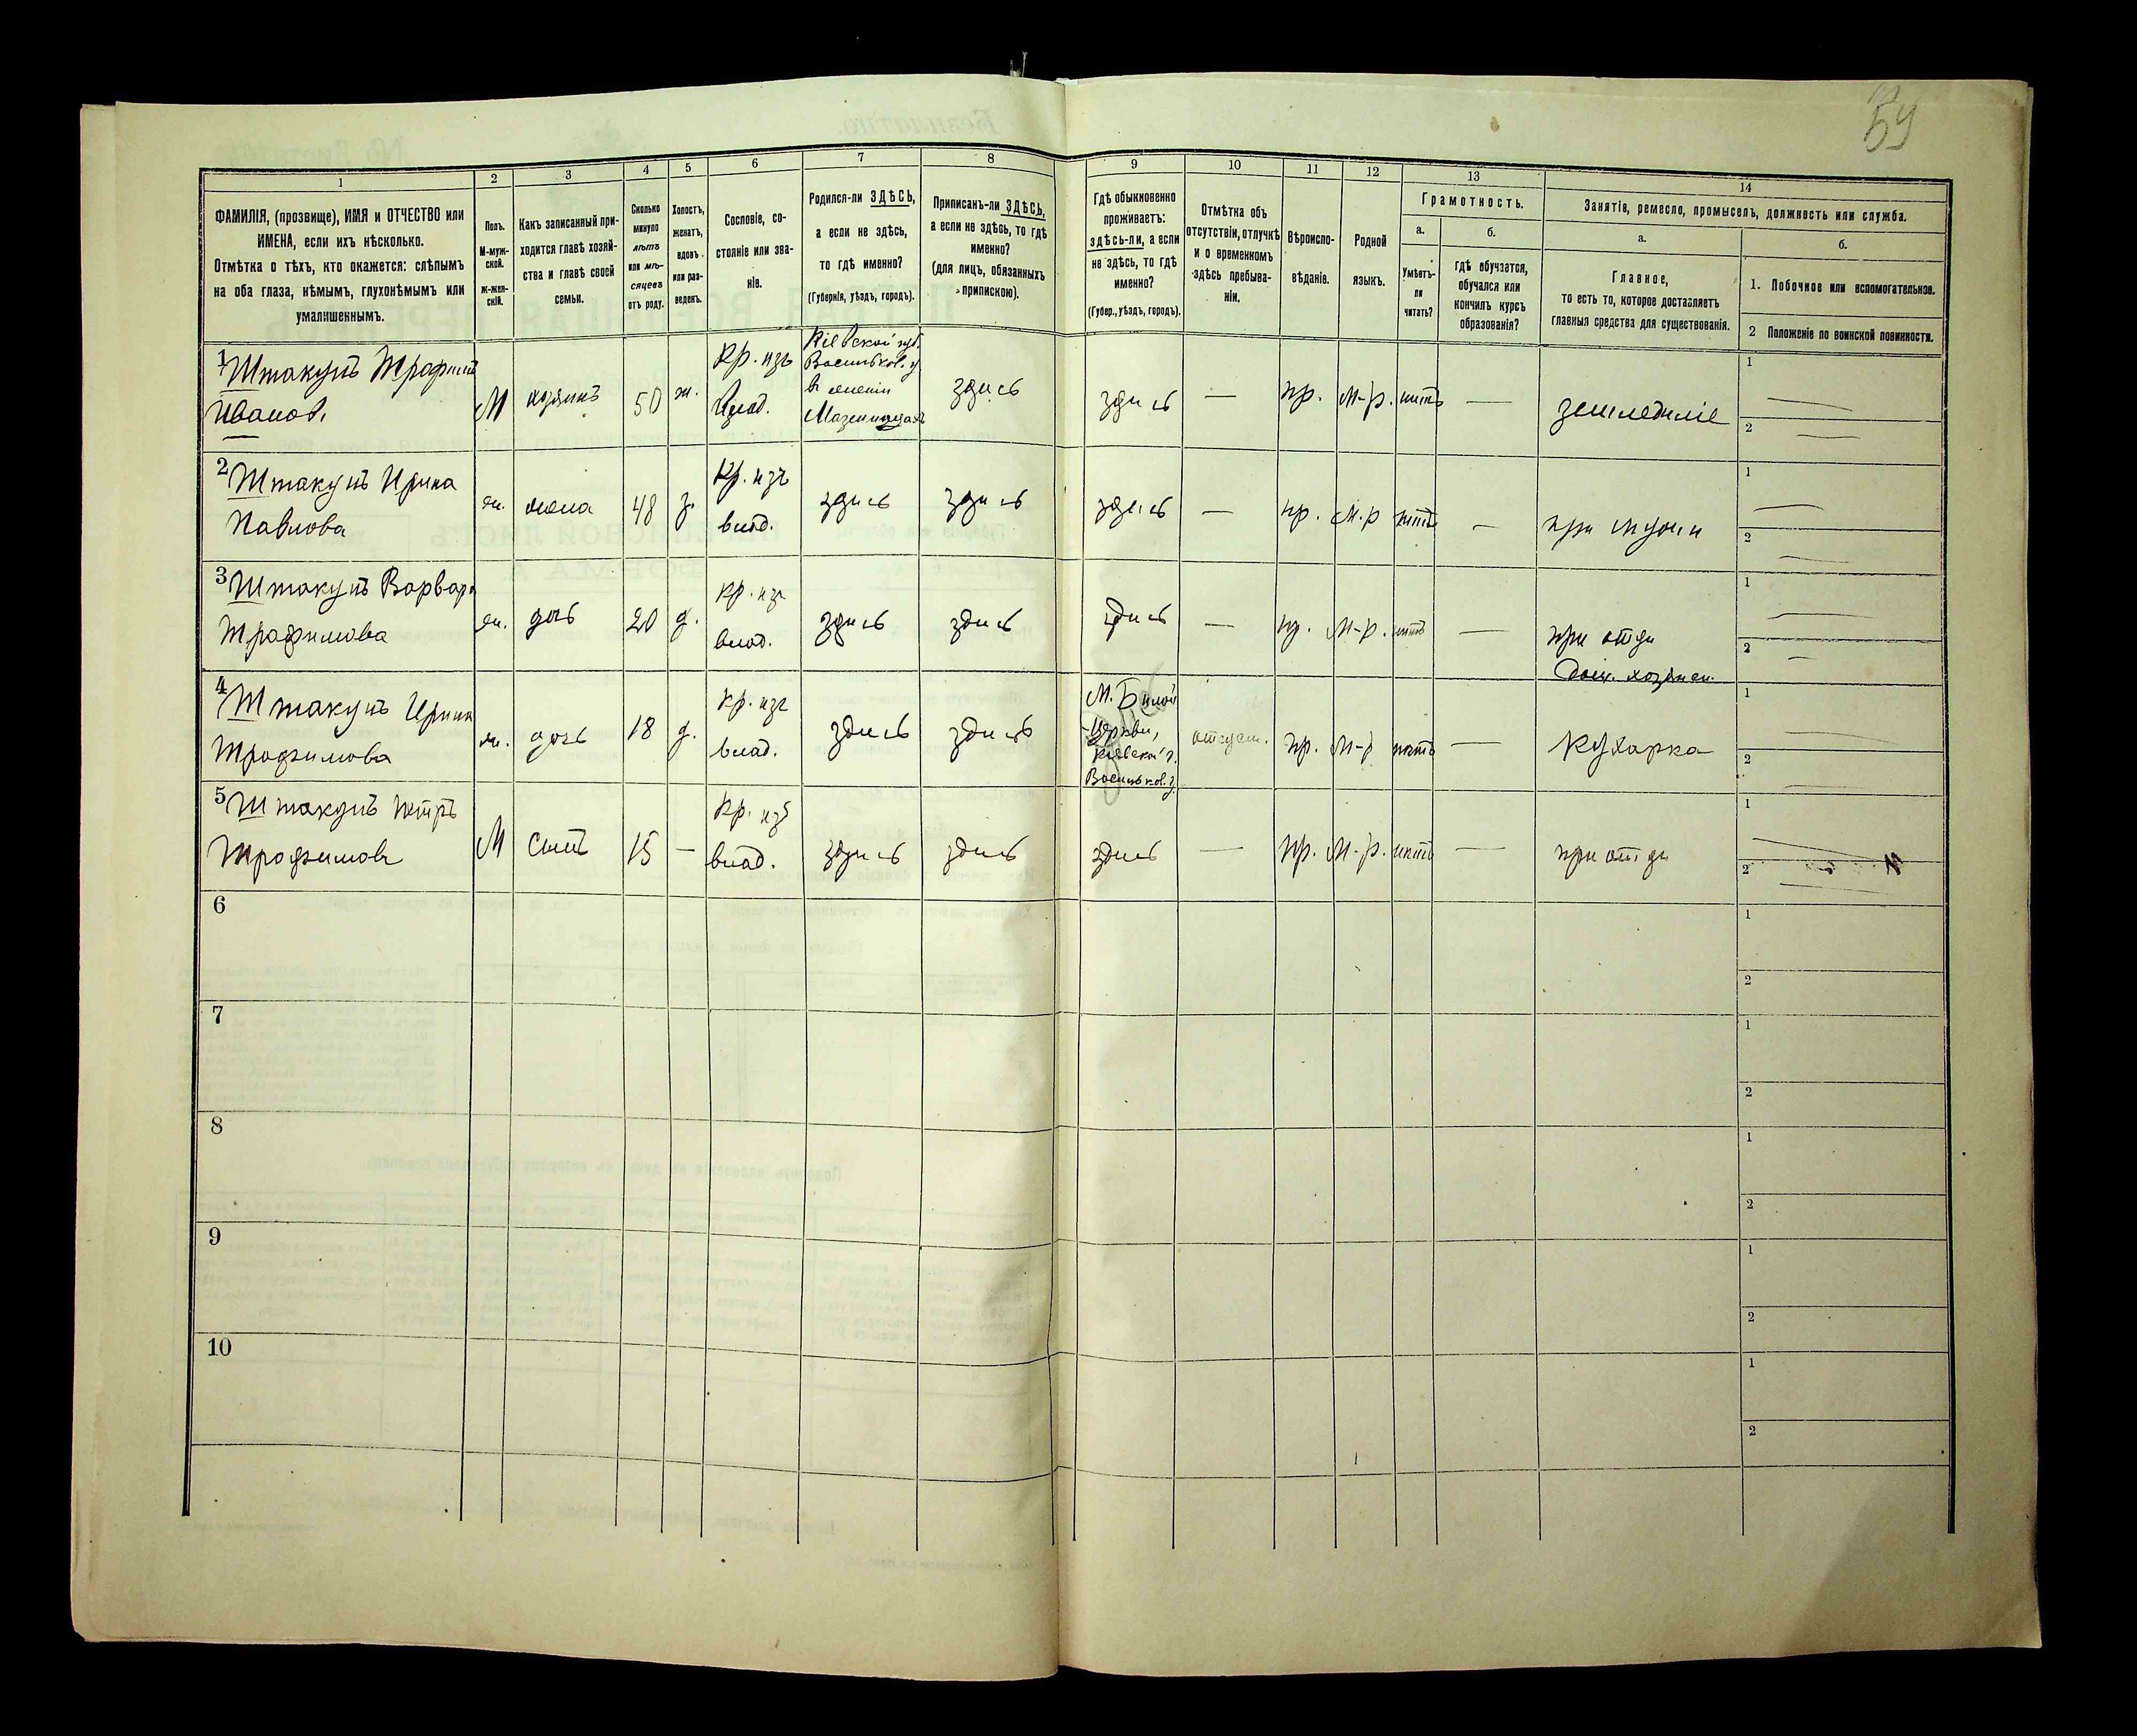 59
1
2
3
4
5
6
7
8
9
10
11
12
13
14
ФАМИЛІЯ, (прозвище), ИМЯ и ОТЧЕСТВО или
ИМЕНА, если ихъ нѣсколько.
Отмѣтка о тѣхъ, кто окажется: слѣпымъ
на оба глаза, нѣмымъ, глухонѣмымъ или
умалишеннымъ.
Полъ.
М-муж-
ской.
Ж-жен-
скій.
Какъ записанный при-
ходится главѣ хозяй-
ства и главѣ своей
семьи.
Сколько
минуло
лѣтъ
или мѣ-
сяцевъ
отъ роду.
Холостъ,
женатъ,
вдовъ
или раз-
веденъ.
Сословіе, со-
стояніе или зва-
ніе.
Родился-ли ЗДѢСЬ,
а если не здѣсь,
то гдѣ именно?
(Губернія, уѣздъ, городъ).
Приписанъ-ли ЗДѢСЬ,
а если не здѣсь, то гдѣ
именно?
(для лицъ, обязанныхъ
припискою).
Гдѣ обыкновенно
проживаетъ:
здѣсь-ли, а если
не здѣсь, то гдѣ
именно?
(Губер., уѣздъ, городъ).
Отмѣтка объ
отсутствіи, отлучкѣ
и о временномъ
здѣсь пребыва-
ніи.
Вѣроиспо-
вѣданіе.
Родной
языкъ.
Грамотность.
а.
Умѣетъ-
ли
читать?
б.
гдѣ обучается,
обучался или
кончилъ курсъ
образованія?
Занятіе, ремесло, промыселъ, должность или служба.
а.
Главное,
то есть то, которое доставляетъ
главныя средства для существованія.
б.
1. Побочное или вспомогательное.
2 Положеніе по воинской повинности.
1 Штакунъ Трофимъ
Ивановъ
М
хозяинъ
50
ж.
Кр. изъ
влад.
Кіевской губ.
Васильков. у
в имении
здись
здись
—
пр.
М-р.
нитъ
—
земледиліе
1
2
2 Штакунъ Ирина
Павлова
жи.
жена
48
з.
Кр. изъ
влад.
здись
здись
здись
—
пр.
М.р
нитъ
—
при мужи
1
2
3 Штакунъ Варвара
Трофимова
жи.
дочь
20
д.
Кр. изъ
влад.
здись
здись
здись
—
пр.
М-р.
нитъ
—
при отци
Дом. хозяйи.
1
2
4 Штакунъ Ирина
Трофимова
жи.
дочь
18
д.
Кр. изъ
влад.
здись
здись
М. Билой
Церкви,
Кіевской г.
Васильков. у.
отсут.
пр.
М-р
нитъ
—
Кухарка
1
2
5 Штакунъ Петръ
Трофимовъ
М
Сынъ
15
—
Кр. изъ
влад.
здись
здись
здись
—
пр.
М-р.
нитъ
—
при отци
1
2
6
1
2
7
1
2
8
1
2
9
1
2
10
1
2